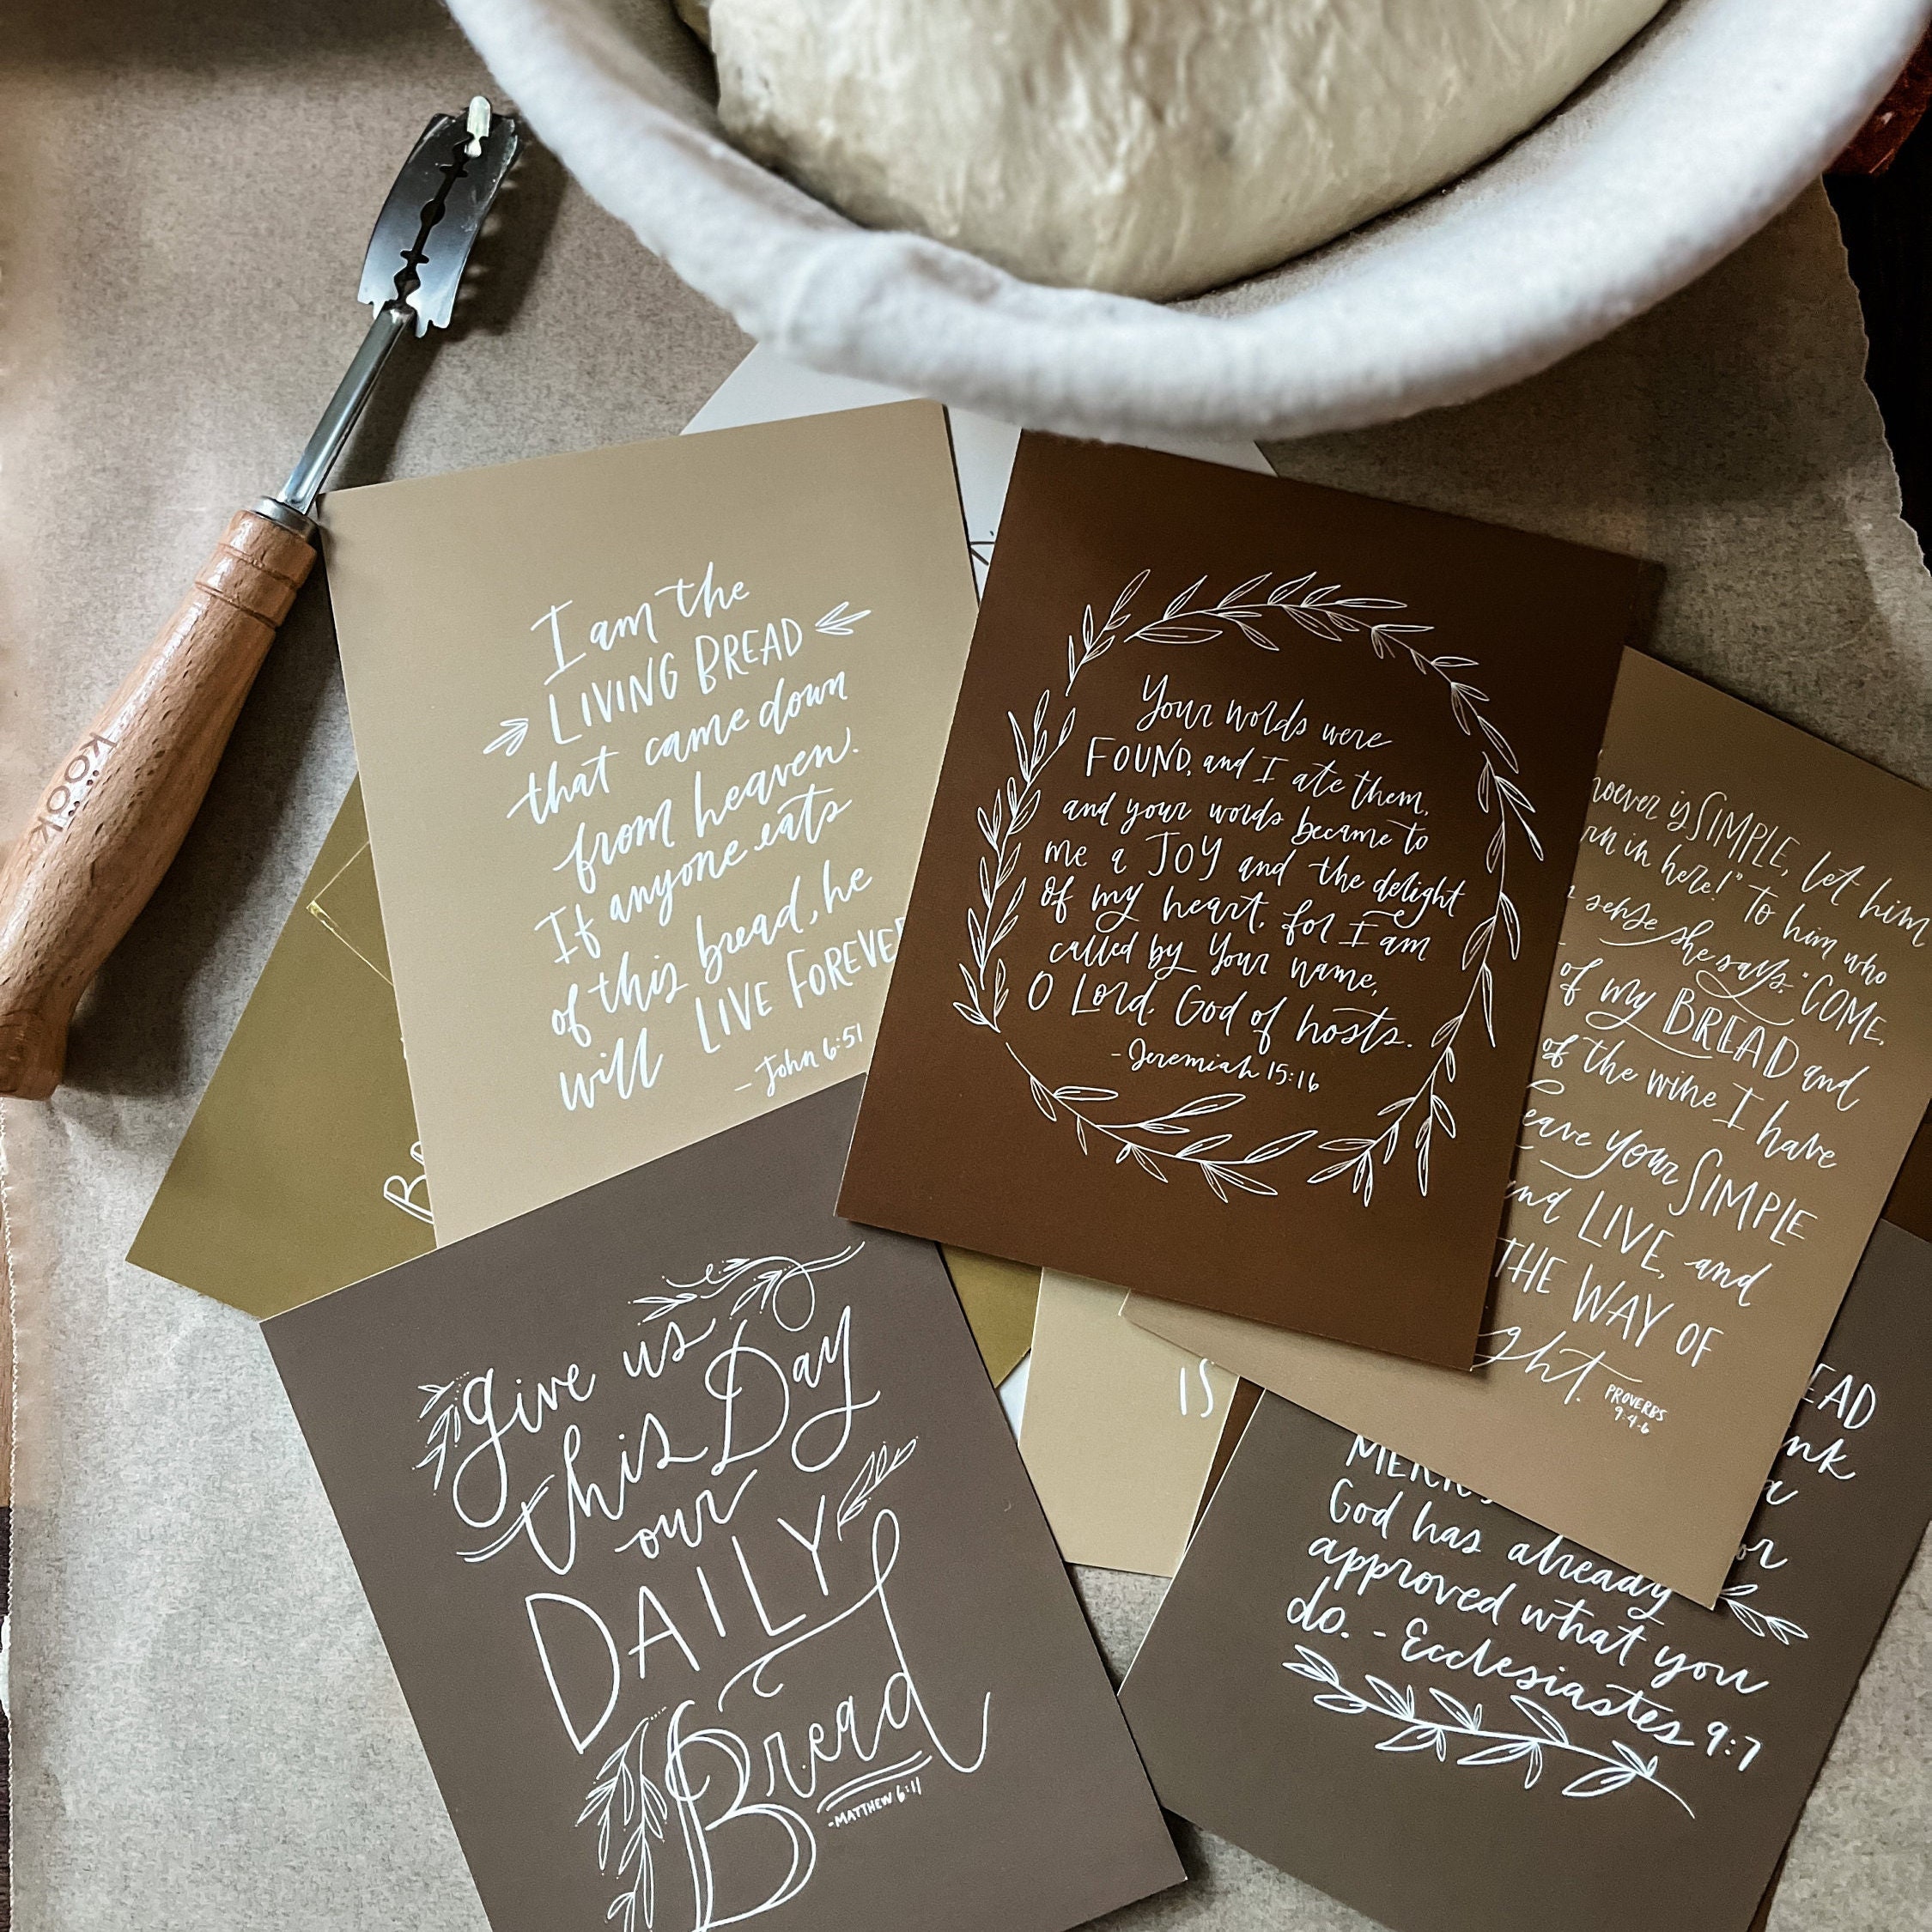 KOOK
I am the
LIVING BREAD
that came down
from heaven.
If anyone eats
of this bread, he
will LIVE FOREVER
- John 6:51
Your words were
FOUND, and I ate them,
and your words became to
me a JOY and the delight
of my heart, for I am
called by Your name,
O Lord, God of hosts.
- Jeremiah 15:16
is SIMPLE, let him
in here!" To him who
sense she says: "COME,
of my BREAD and
of the wine I have
your SIMPLE
LIVE, and
THE WAY OF
PROVERBS
9:4-6
give us
this Day
our
DAILY
Bread
-MATTHEW 6:11
IS
God has already
approved what you
do. - Ecclesiastes 9:7